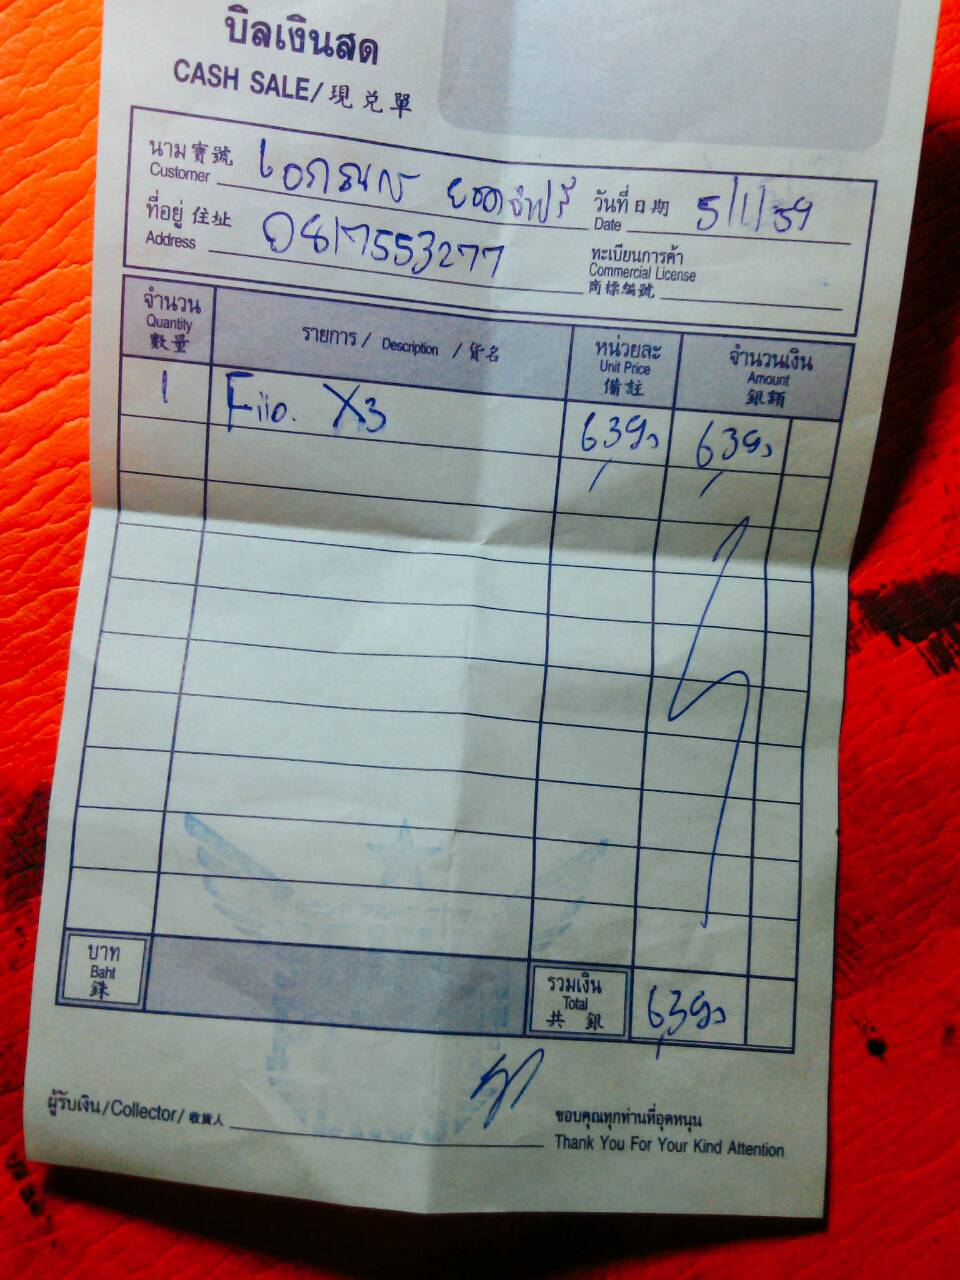 บิลเงินสด
CASH SALE/現兌單
นาม寶號
Customer
วันที่日期 5/1/59
Date
ที่อยู่住址 0817553277
Address
ทะเบียนการค้า
Commercial License
商標編號
จำนวน
Quantity
數量
รายการ / Description / 货名
หน่วยละ
Unit Price
備註
จำนวนเงิน
Amount
銀額
1 Fiio. X3 6,390 6,390
บาท
Baht
銖
รวมเงิน
Total
共 銀
6,390
ผู้รับเงิน/Collector/收貨人
ขอบคุณทุกท่านที่อุดหนุน
Thank You For Your Kind Attention